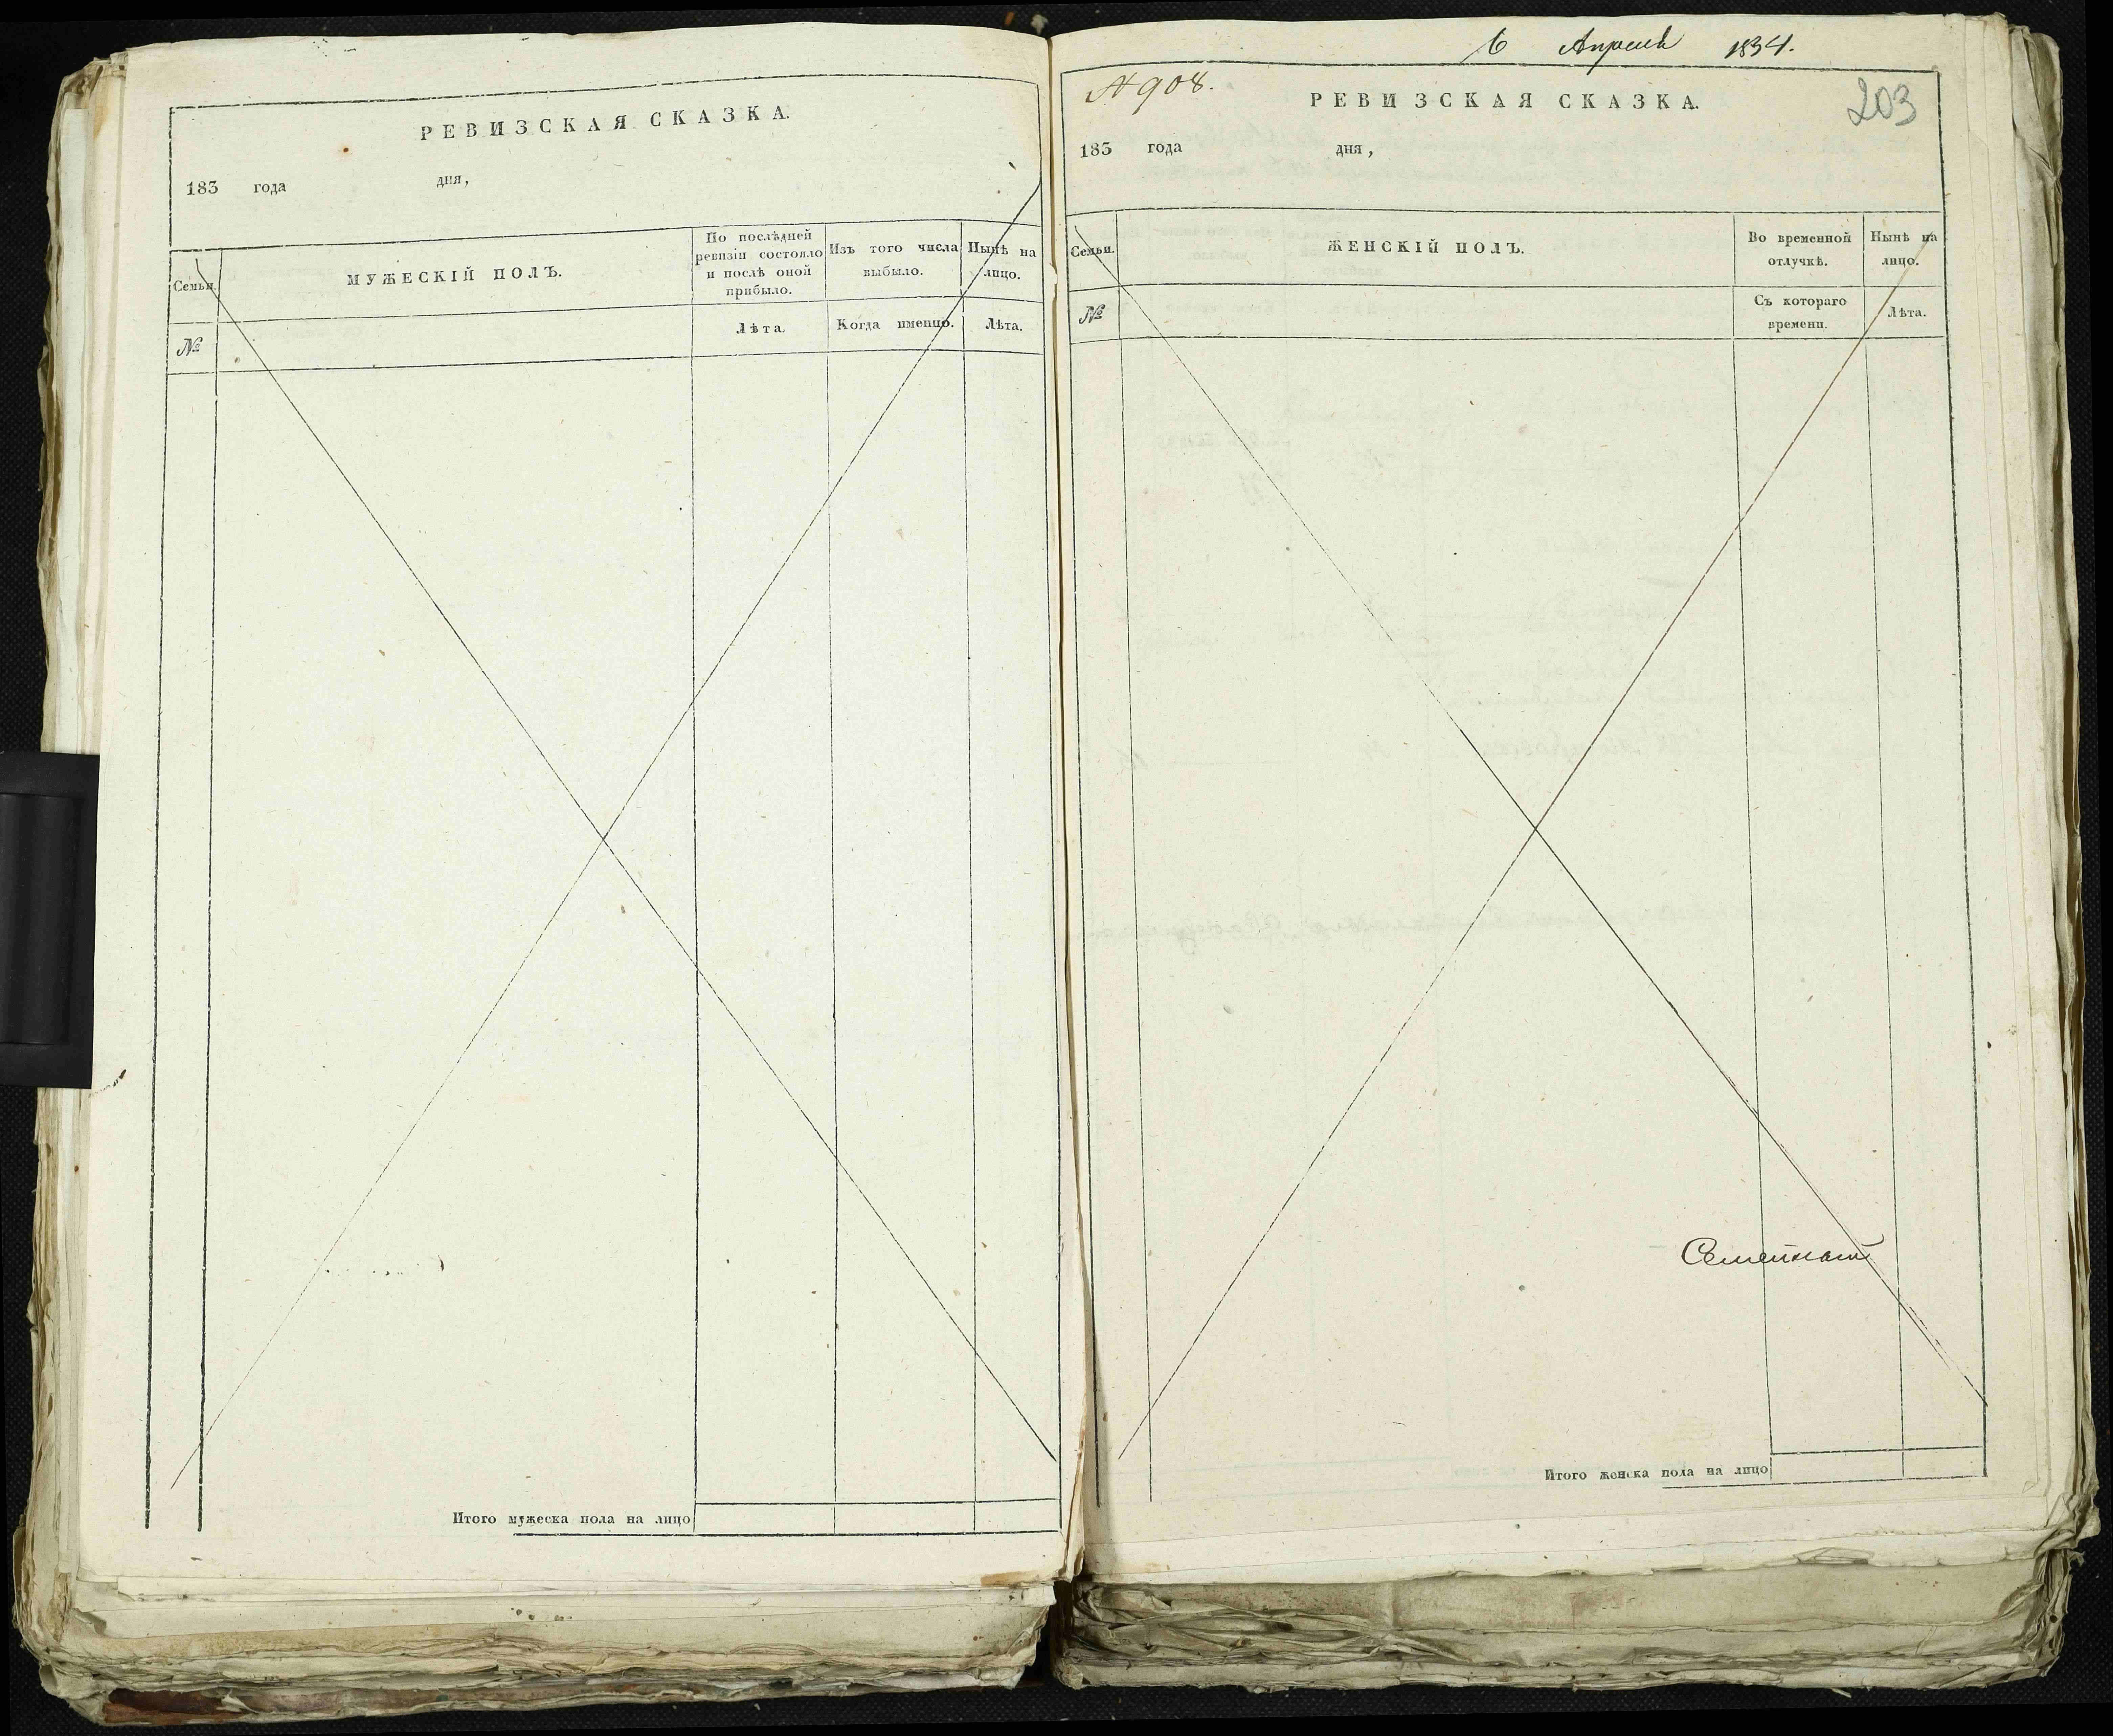 РЕВИЗСКАЯ СКАЗКА.
183 года дня,
Семьи.
МУЖЕСКІЙ ПОЛЪ.
По послѣдней ревизіи состояло и послѣ оной прибыло.
Изъ того числа выбыло.
Нынѣ на лицо.
№
Лѣта.
Когда именно.
Лѣта.
Итого мужеска пола на лицо
6 Апреля 1834.
№ 908.
РЕВИЗСКАЯ СКАЗКА.
203
183 года дня,
Семьи.
ЖЕНСКІЙ ПОЛЪ.
Во временной отлучкѣ.
Нынѣ на лицо.
№
Съ котораго времени.
Лѣта.
Итого женска пола на лицо